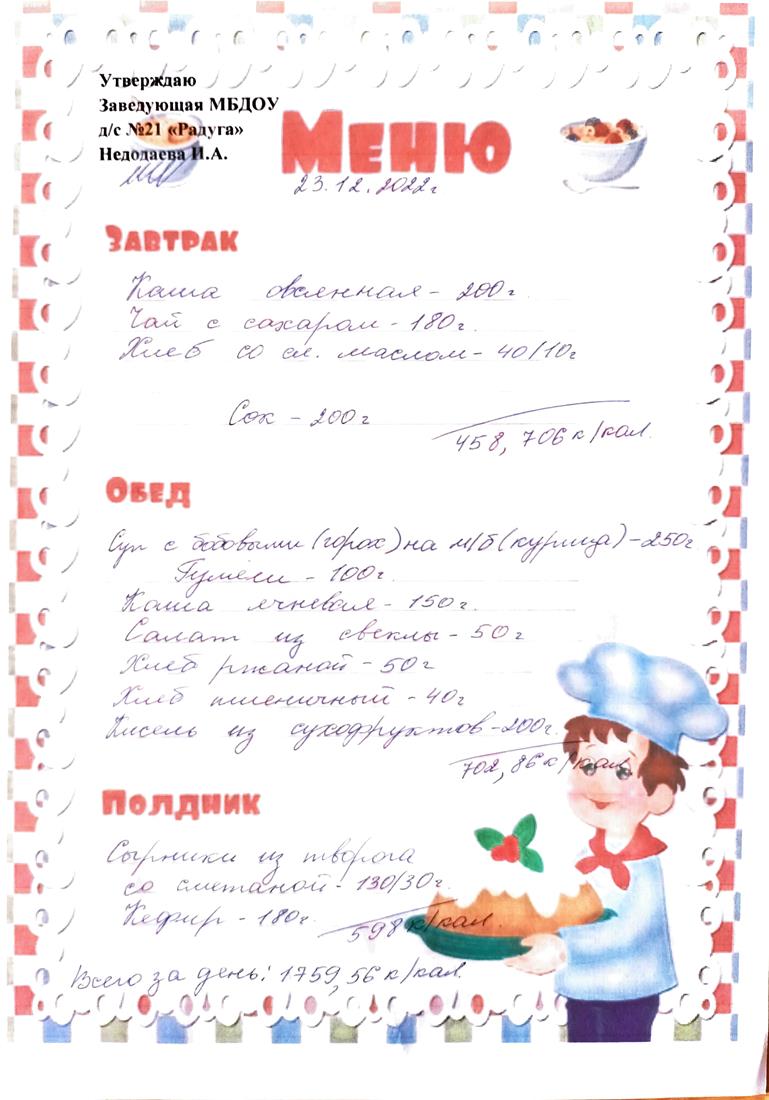 Утверждаю
Заведующая МБДОУ
д/с №21 «Радуга»
Недодаева И.А.
Меню
23.12.2022г
Завтрак
Каша овсянная - 200г.
Чай с сахаром - 180г.
Хлеб со сл. маслом - 40/10г
Сок - 200г
458,706 к/кал.
Обед
Суп с бобовыми (горох) на м/б (курица) - 250г
Гуляш - 100г.
Каша ячневая - 150г.
Салат из свеклы - 50г
Хлеб ржаной - 50г
Хлеб пшеничный - 40г
Кисель из сухофруктов - 200г.
702,86 к/кал.
Полдник
Сырники из творога
со сметаной - 130/30г.
Кефир - 180г.
598 к/кал.
Всего за день: 1759,56 к/кал